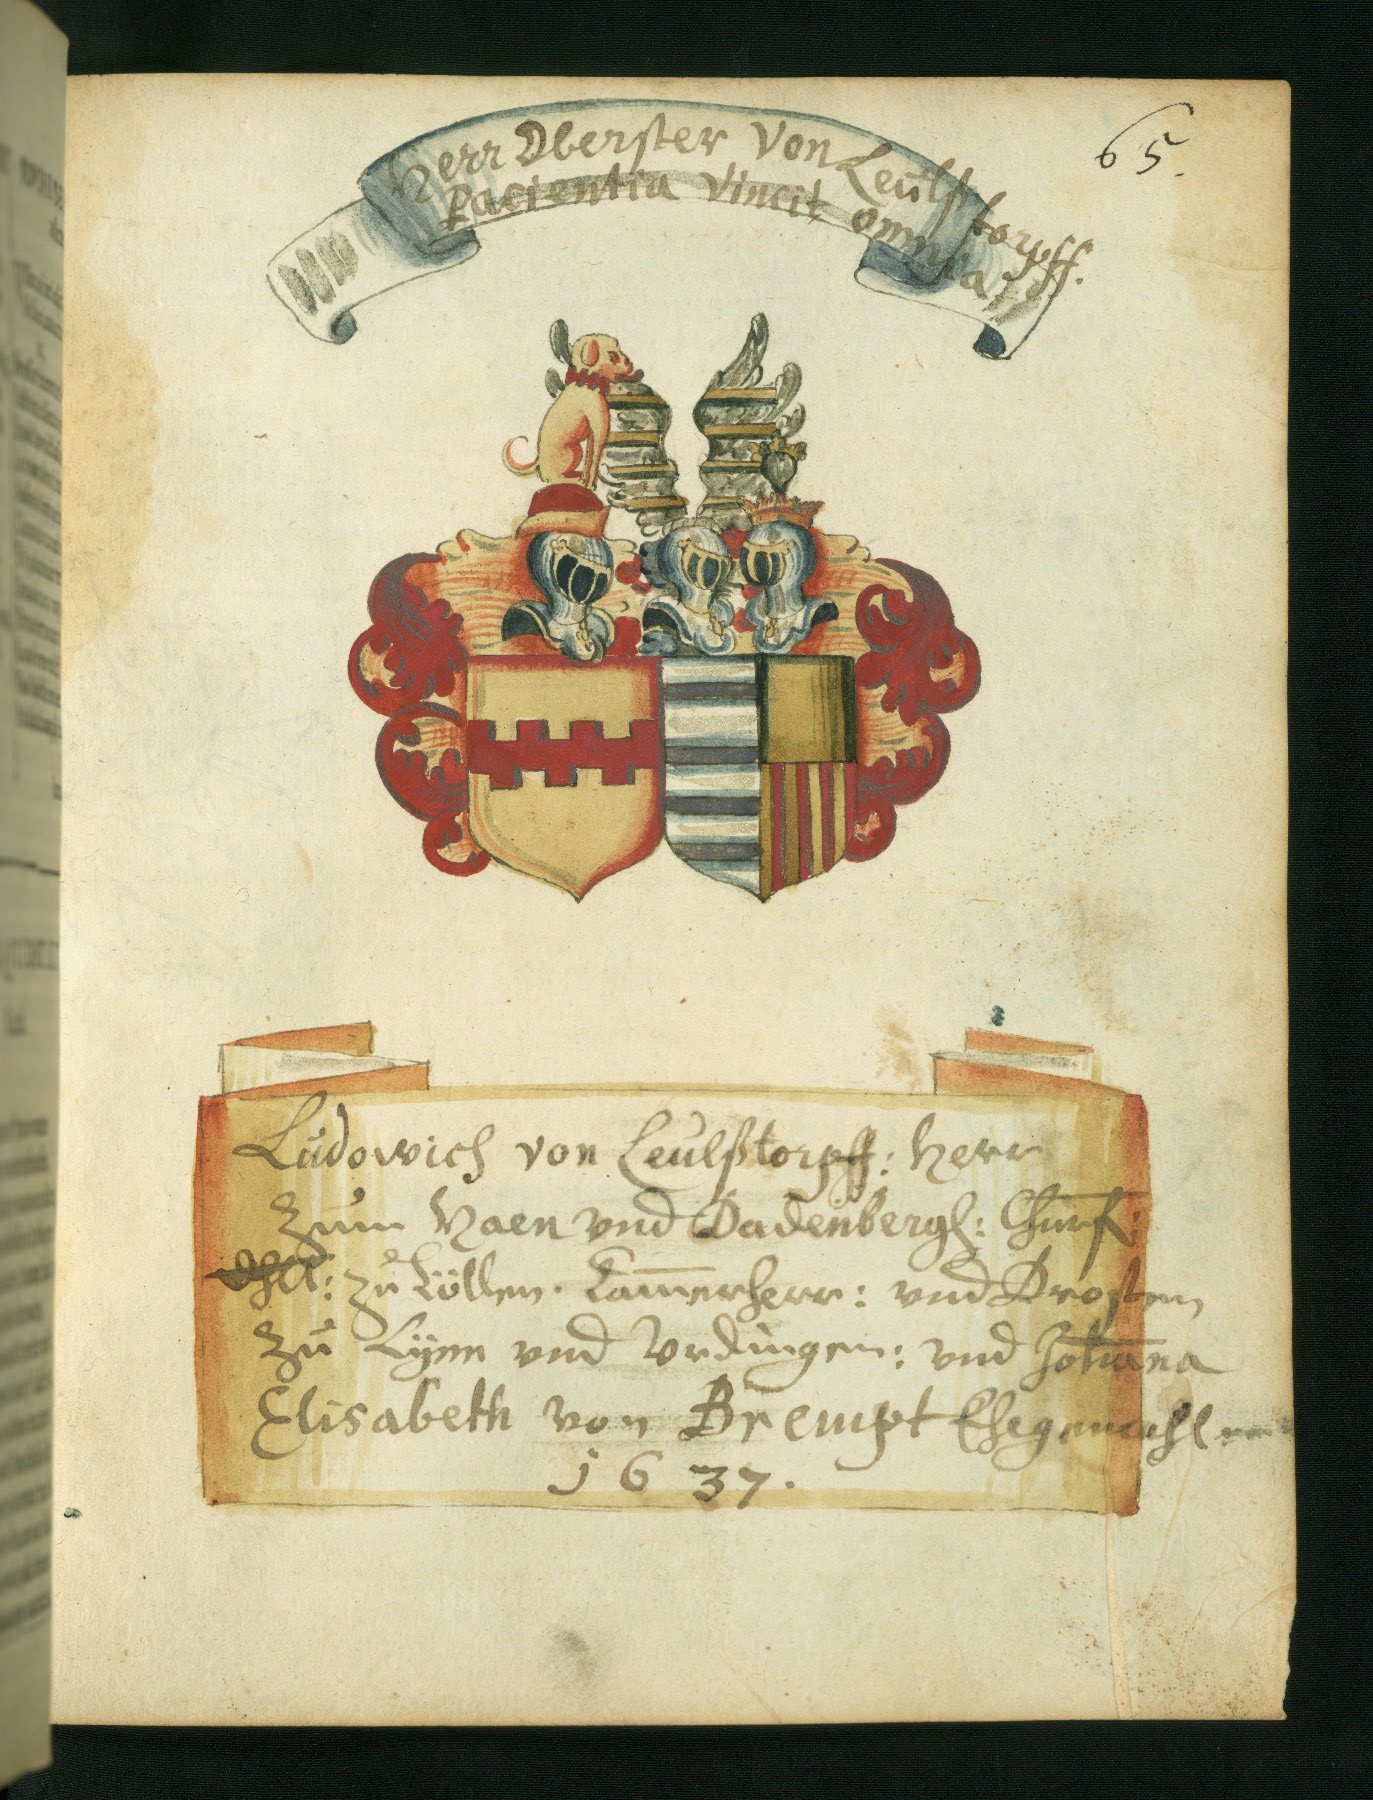 65.
Herr Oberster Von Leülstorpff.
Pacientia Vincit omnia
Lüdowich von Leülßtorpff: Herr
Zum Haen vnd Dadenbergh: Churf:
zů Cöllen. Cam̄erherr: vnd Drosten
Zů Lÿnn vnd Vrdingen: vnd Johana
Elisabeth von Brempt Ehegemahl
1637.